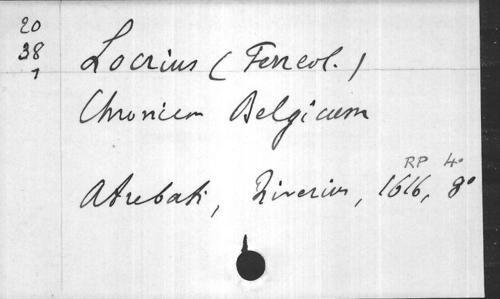 20
38
1
Locrius (Ferreol.)
Chronicon Belgicum
RP 4°
Atrebati, Riverius, 1616, 8°